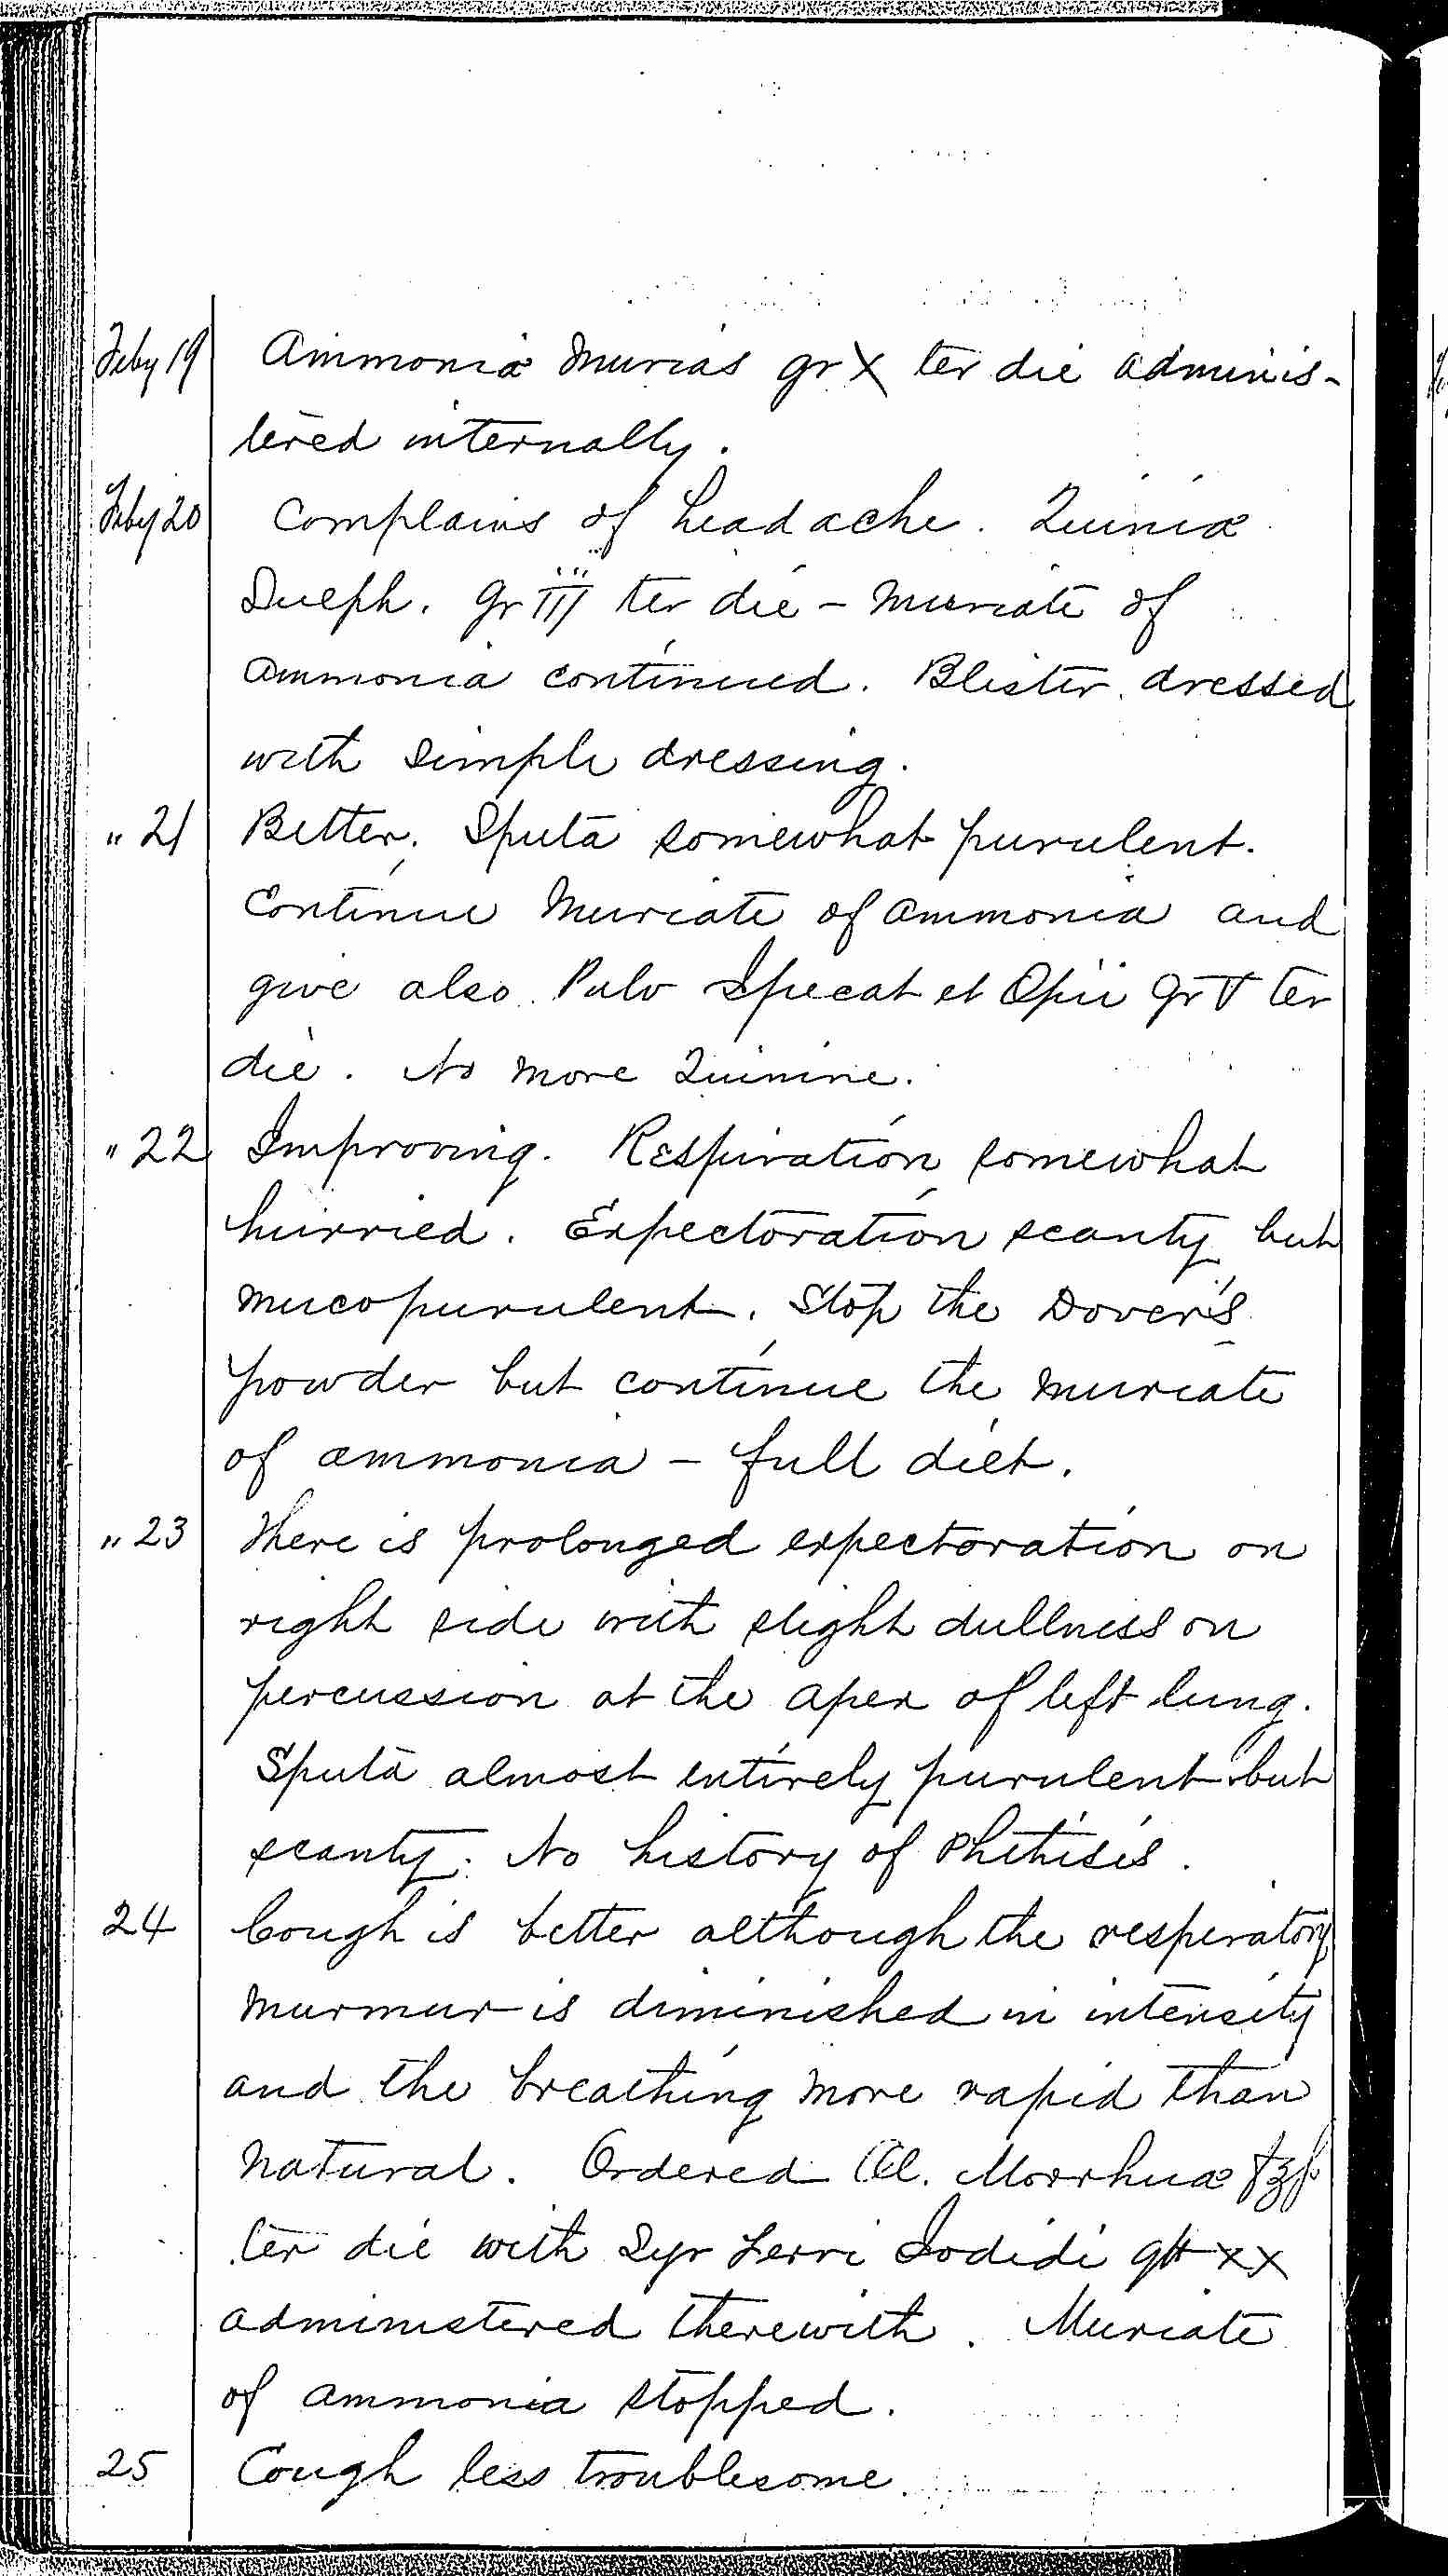 Feby 19 Ammoniæ Murias gr X ter die adminis-
tered internally.
Feby 20 Complains of headache. Quiniæ
Sulph. gr iii ter die - Muriate of
ammonia continued. Blister dressed
with simple dressing.
" 21 Better. Sputa somewhat purulent.
Continue Muriate of ammonia and
give also Pulv Ipecat et Opii gr V ter
die. No more Quinine.
" 22 Improving. Respiration somewhat
hurried. Expectoration scanty but
mucopurulent. Stop the Dover's
powder but continue the muriate
of ammonia - full diet.
" 23 There is prolonged expectoration on
right side with slight dullness on
percussion at the apex of left lung.
Sputa almost entirely purulent but
scanty. No history of Phthisis.
24 Cough is better although the respiratory
murmur is diminished in intensity
and the breathing more rapid than
natural. Ordered Ol. Morrhuæ fʒß
ter die with Syr Ferri Iodidi gtt xx
administered therewith. Muriate
of ammonia stopped.
25 Cough less troublesome.